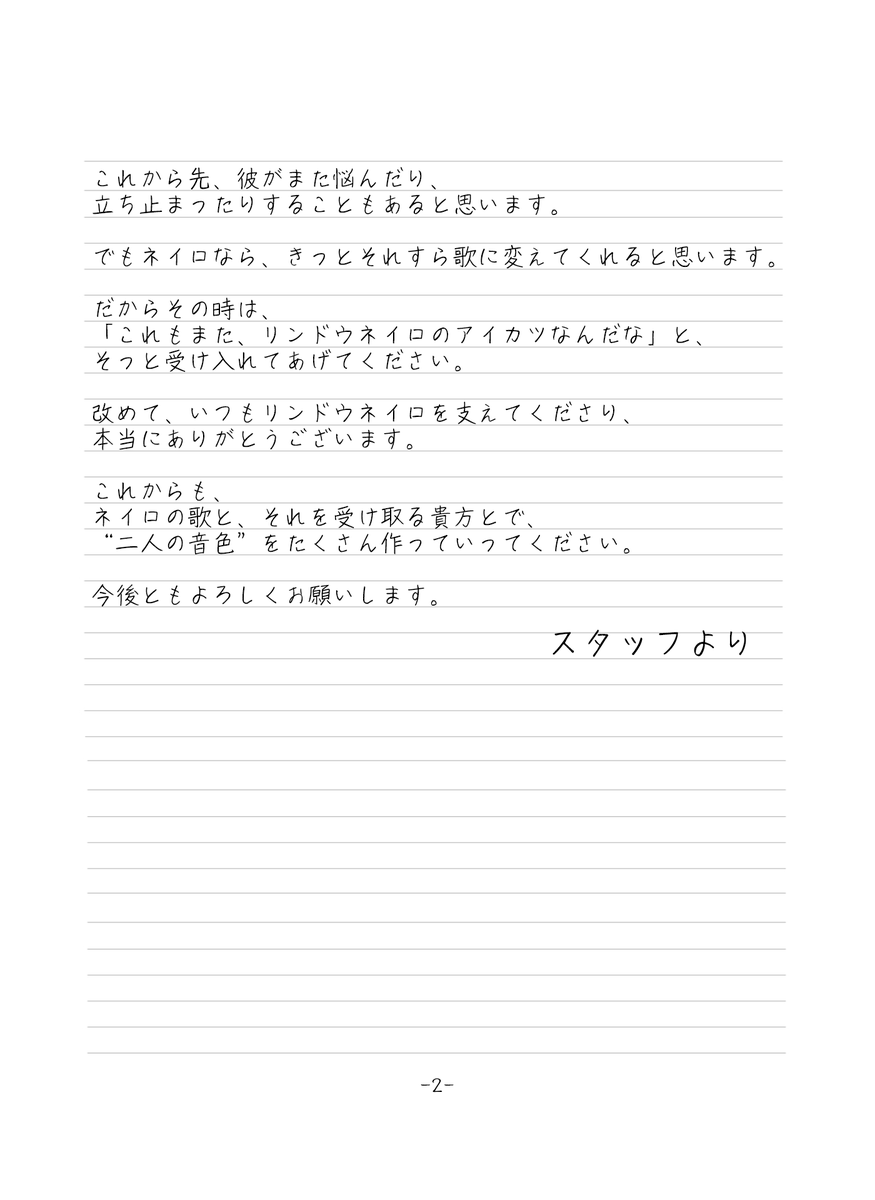 これから先、彼がまた悩んだり、
立ち止まったりすることもあると思います。
でもネイロなら、きっとそれすら歌に変えてくれると思います。
だからその時は、
「これもまた、リンドウネイロのアイカツなんだな」と、
そっと受け入れてあげてください。
改めて、いつもリンドウネイロを支えてくださり、
本当にありがとうございます。
これからも、
ネイロの歌と、それを受け取る貴方とで、
“二人の音色”をたくさん作っていってください。
今後ともよろしくお願いします。
スタッフより
-2-